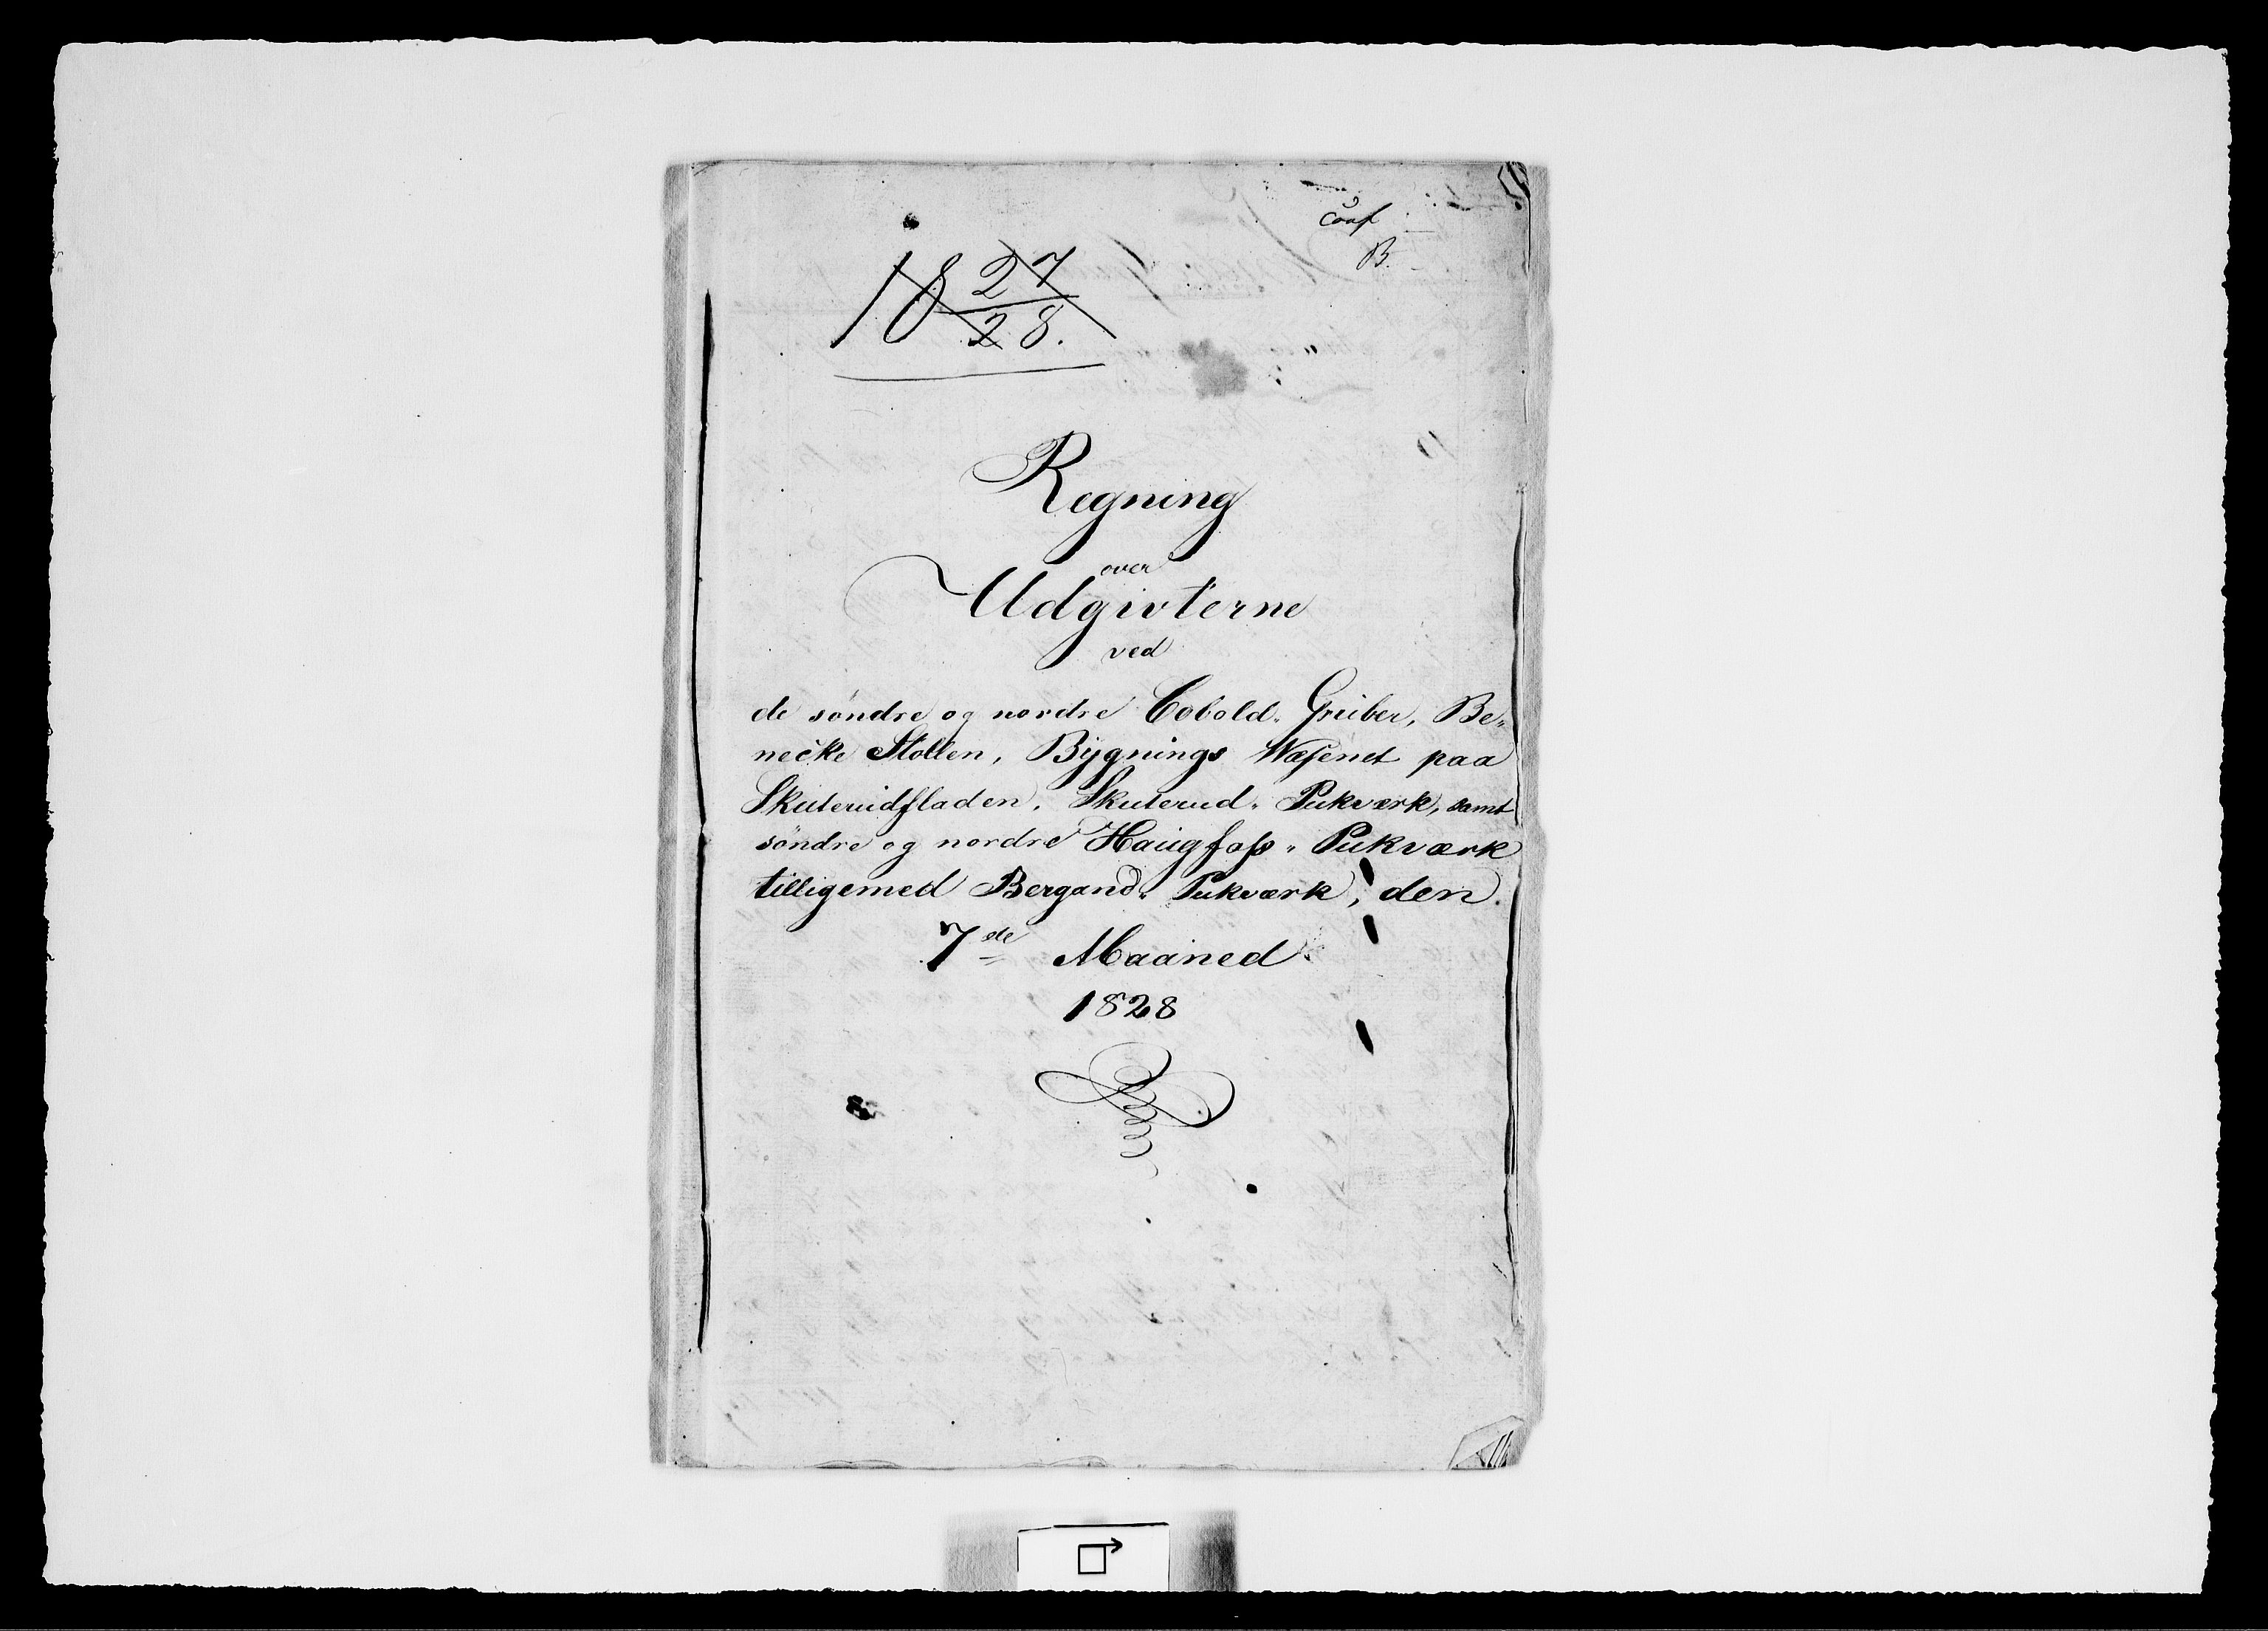 conf
B.
18 27/28.
Regning
over
Udgivterne
ved
de söndre og nordre Cobold-Gruber, Be-
necke Stollen, Bygnings Wæsenet paa
Skuterudfladen, Skuterud-Pukværk, samt
söndre og nordre Haugfoss-Pukværk
tilligemed Bergand-Pukværk, den
7de Maaned
1828